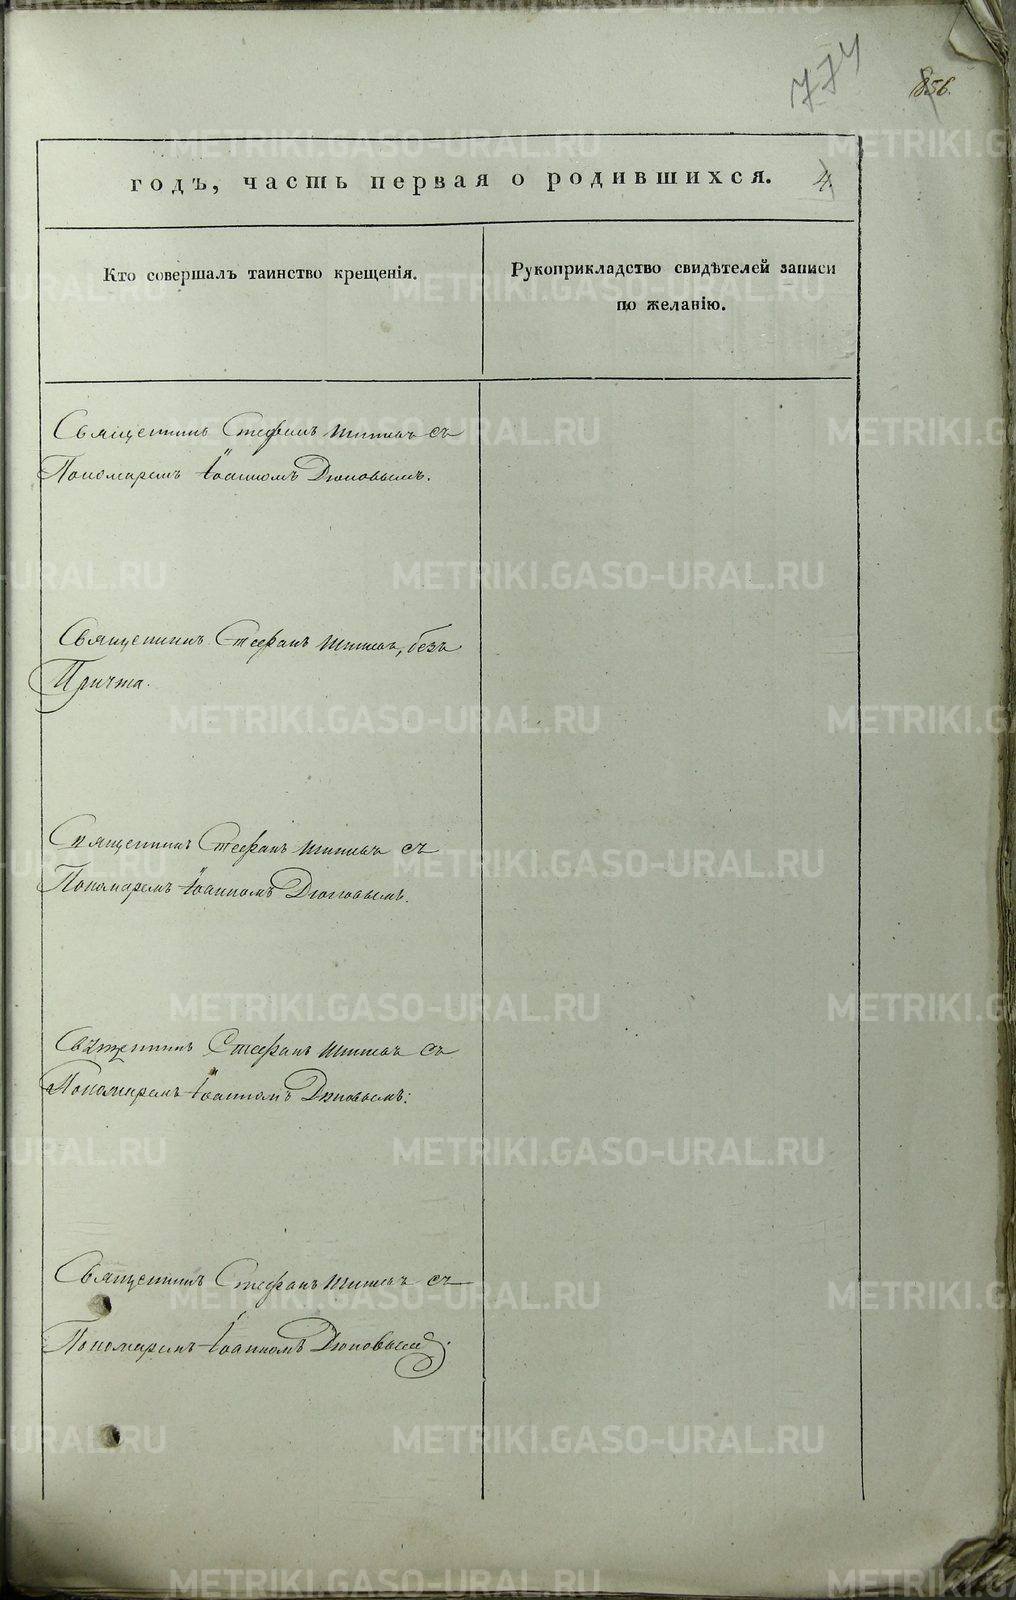 774
856.
годъ, часть первая о родившихся. 4.
Кто совершалъ таинство крещенія.
Рукоприкладство свидѣтелей записи
по желанію.
Священникъ Стефанъ съ
Пономаремъ Іоанномъ Дюповымъ.
Священникъ Стефанъ безъ
Причта.
Священникъ Стефанъ съ
Пономаремъ Іоанномъ Дюповымъ.
Священникъ Стефанъ съ
Пономаремъ Іоанномъ Дюповымъ.
Священникъ Стефанъ съ
Пономаремъ Іоанномъ Дюповымъ.
METRIKI.GASO-URAL.RU